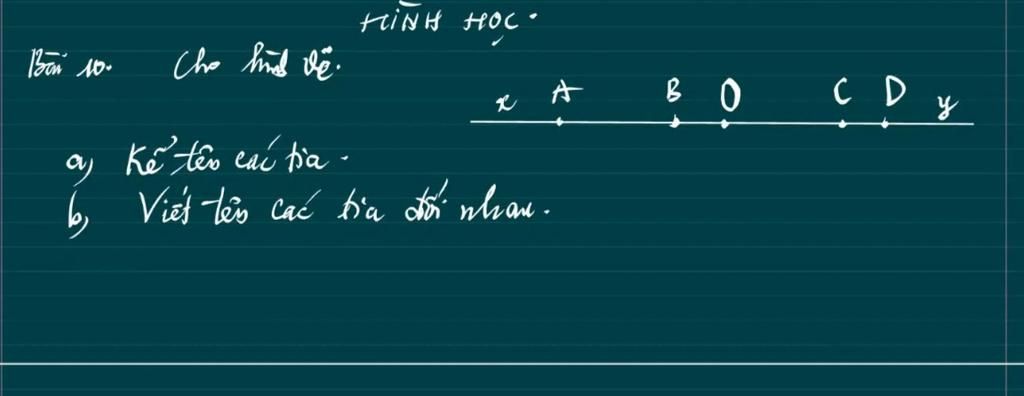 HÌNH HỌC.
Bài 10. Cho hình vẽ.
x A B O C D y
a, Kể tên các tia.
b, Viết tên các tia đối nhau.